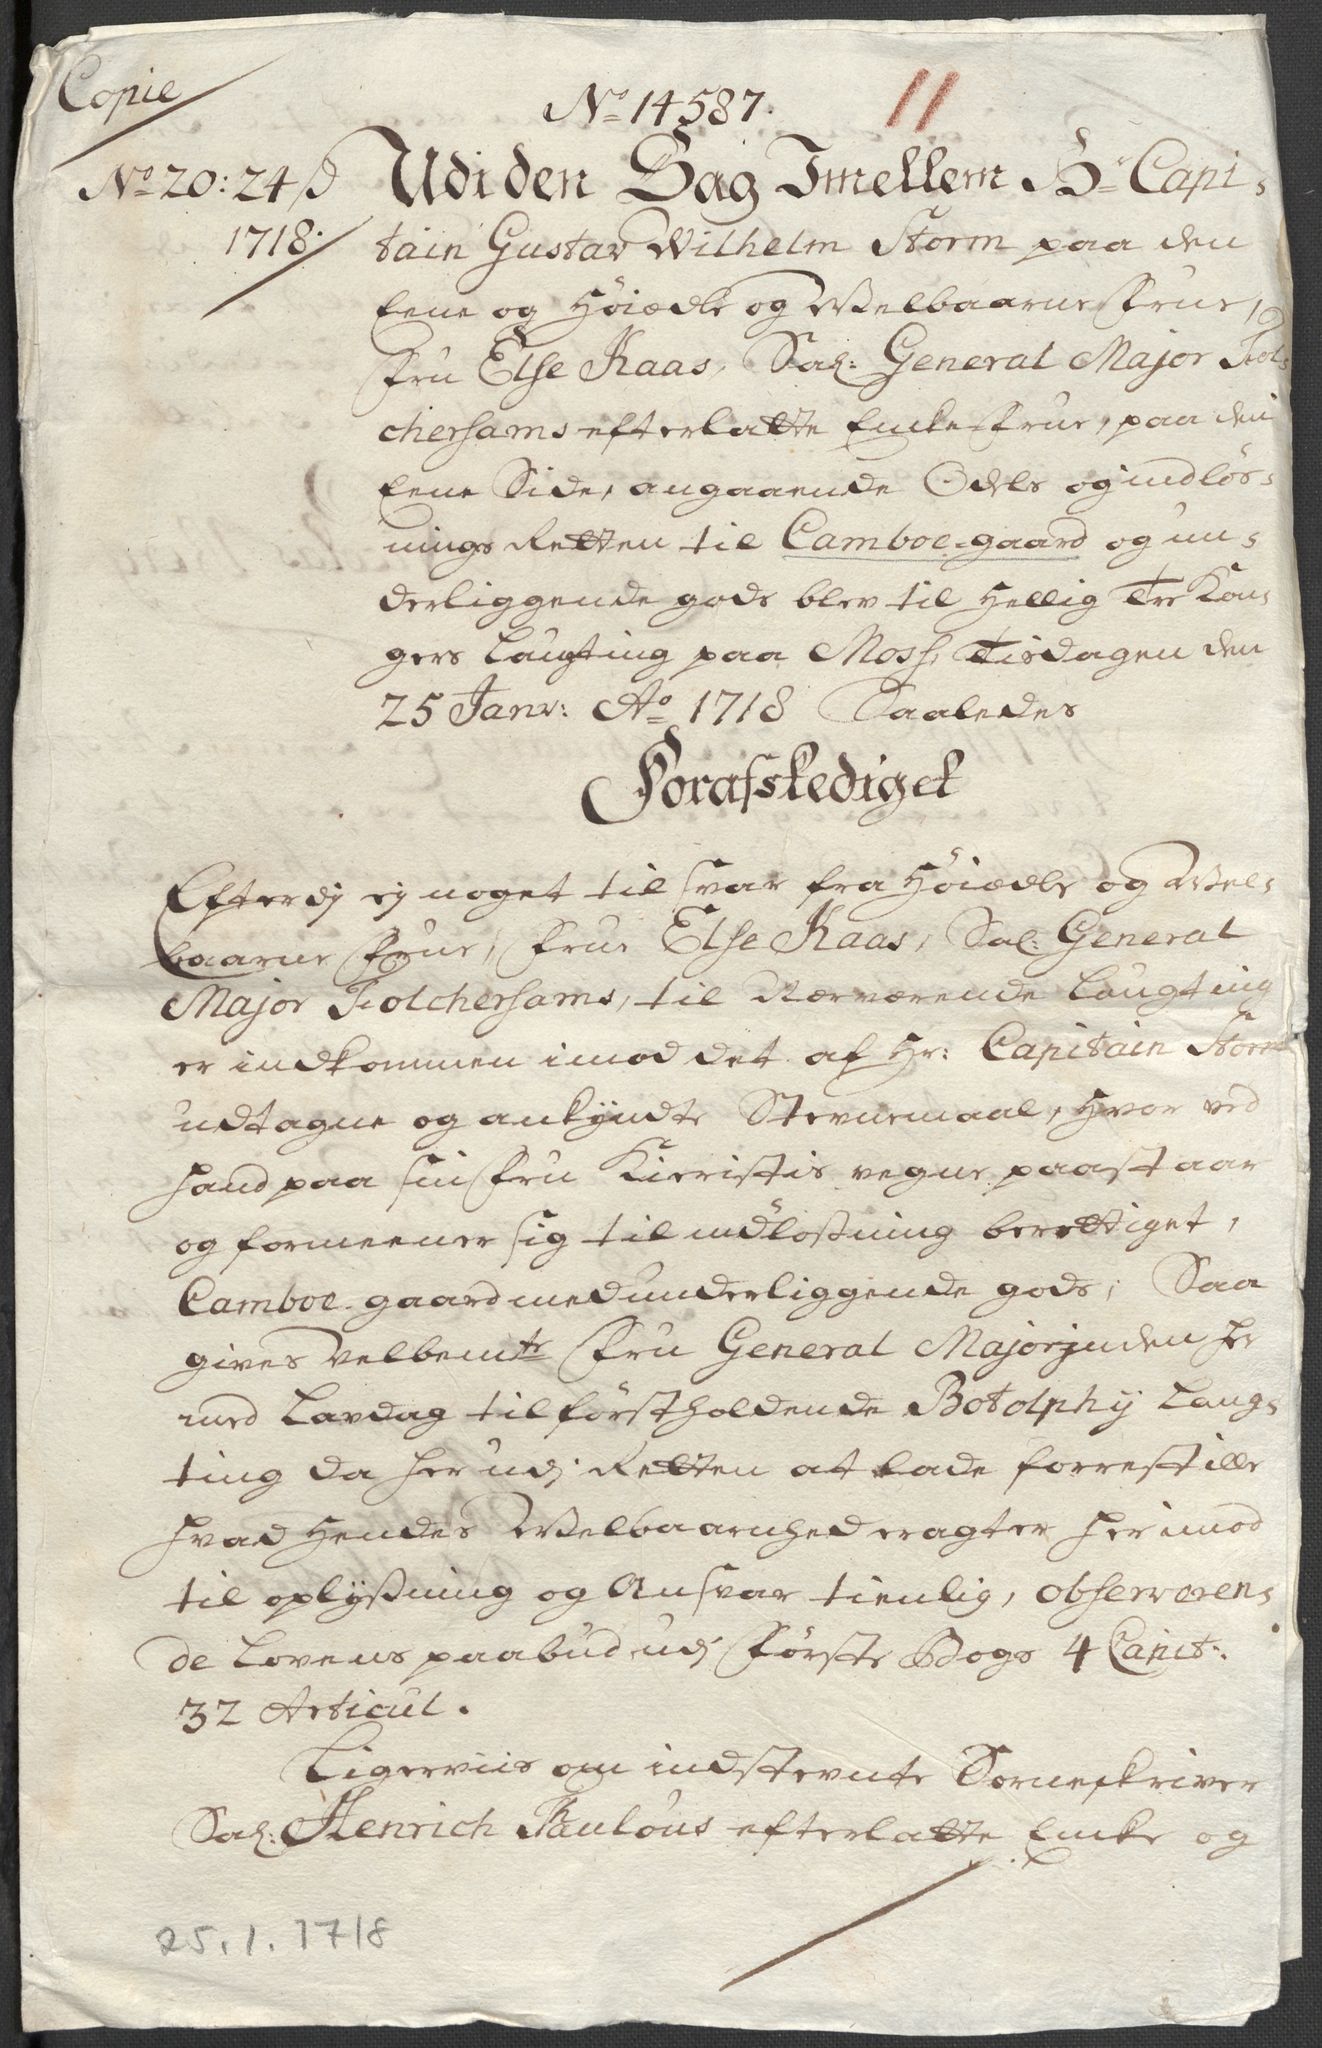 Copie
No 14587. 11
No 20: 24 ß
1718.
Udi den Sag Imellem Hr Capi-
tain Gustav Wilhelm Storm paa den
Eene og Høiædle og Velbaarne Frue,
Fru Else Kaas, Sal: General Major Tol-
chershams efterlatte Encke Frue, paa den
Eene Side, angaaende Odels og indløs-
nings Retten til Camboe-gaard og un-
derliggende gods blev til Hellig Tre Kon-
gers Laugting paa Moss, Tisdagen den
25 Janv: Ao 1718 Saaledes
Forafskediget
Efterdj ej noget tilsvar fra Høiædle og Vel-
baarne Frue, Frue Else Kaas, Sal: General
Major Tolchershams, til Nærværende Laugting
er indkommen imod det af Hr: Capitain Storm
udtagne og ankyndte Stevnemaal, hvor ved
hand paa sin Fru Kieristis vegne paastaar
og formeener sig til indløsning berettiget,
Camboe-gaard med underliggende gods; Saa
gives velbemte Fru General Majorinden her
med Lavdag til førstholdende Botolphy Laug-
ting da her udj Retten at lade forrestille
hvad Hendes Velbaarnhed eragter her imod
til oplysning og Ansvar tienlig, observeren-
de Lovens paabud udj Første Bogs 4 Capit:
32 Articul.
Ligerviis om indstevnte Sorenskriver
Sal: Henrich Paulous efterlatte Encke og
25.1.1718